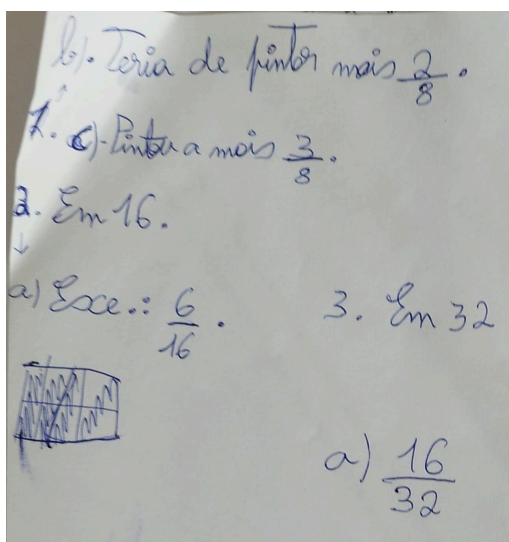 b). Teria de pintar mais 2/8.
1. c)-Pintava mais 3/8.
2. Em 16.
a) Exe.: 6/16.
3. Em 32
a) 16/32